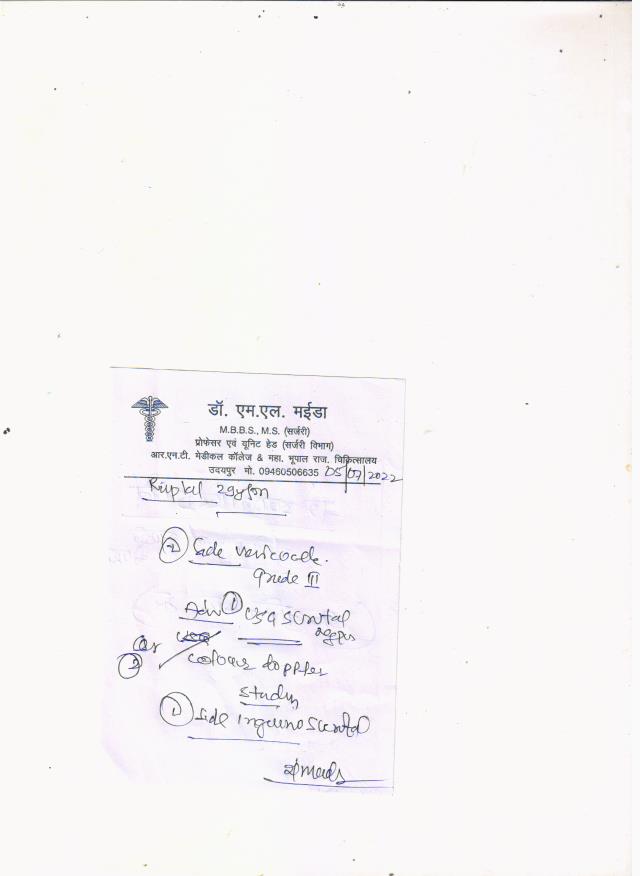 डॉ. एम.एल. मईडा
M.B.B.S., M.S. (सर्जरी)
प्रोफेसर एवं यूनिट हेड (सर्जरी विभाग)
आर.एन.टी. मेडीकल कॉलेज & महा. भूपाल राज. चिकित्सालय
उदयपुर मो. 09460506635 05/07/2022
Side vericocele.
Grade III
Adv ① USG scrotal
Or
② colour doppler
study
Side inguinoscrotal